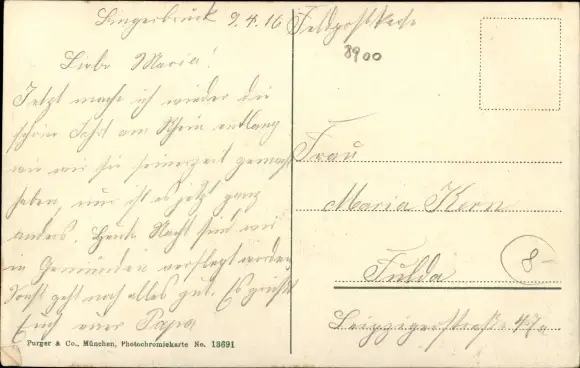 Bingerbrück 9.4.16
Liebe Maria!
Jetzt mache ich wieder die
schöne Fahrt am Rhein entlang
wie wir sie seinerzeit gemacht
haben, nur ist es jetzt ganz
anders. Heute Nacht sind wir
in Gemünden verpflegt worden
Sonst geht noch alles gut. Es grüßt
Euch euer Papa
Purger & Co., München, Photochromiekarte No. 13691
Feldpostkarte
8900
Frau
Maria Kern
Fulda
8-
Leipzigerstraße 47a